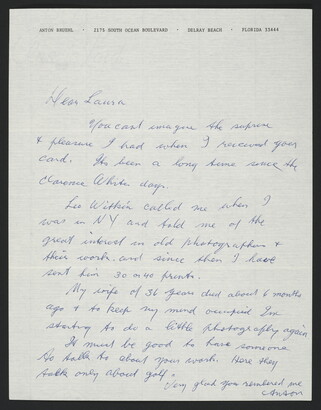 ANTON BRUEHL · 2175 SOUTH OCEAN BOULEVARD · DELRAY BEACH · FLORIDA 33444
Dear Laura
You cant imagine the surprise
& pleasure I had when I received your
card. Its been a long time since the
Clarence White days.
Lee Witkin called me when I
was in N.Y and told me of the
great interest in old photographers &
their work and since then I have
sent him 30 or 40 prints.
My wife of 36 years died about 6 months
ago & to keep my mind occupied I'm
starting to do a little photography again
It must be good to have someone
to talk to about your work. Here they
talk only about golf.
Very glad you remembered me
Anton